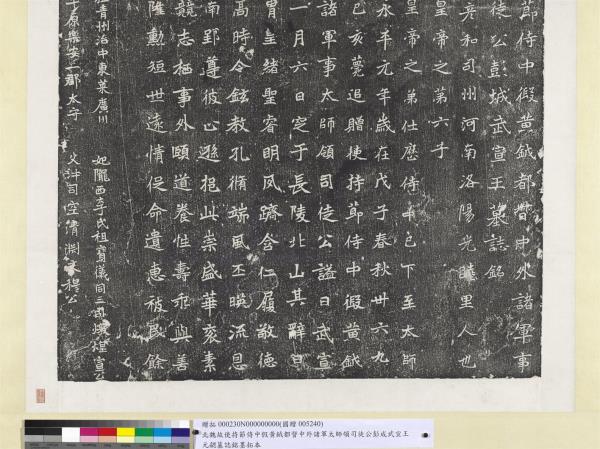 節侍中假黃鉞都督中外諸軍事
徒公彭城武宣王墓誌銘
彥和司州河南洛陽光睦里人也
皇帝之第六子
皇帝之弟仕歷侍中已下至太師
永平元年歲在戊子春秋卅六九
己亥薨追贈使持節侍中假黃鉞
諸軍事太師領司徒公謚曰武宣
一月六日窆于長陵北山其辭曰
胄皇緒聖睿明夙躋含仁履敬德
高時令鉉教孔脩端風丕映流恩
南郢遵彼止遜挹此崇盛華袞素
競志栖事外頤道養性壽乖與善
隆勳短世遠情促命遺惠被民餘
青州治中東萊廣川 妃隴西李氏祖寶儀同三司燉煌宣
平原樂安二郡太守 父沖司空清淵穆公
贈拓 000230N000000000(國贈 005240)
北魏故使持節侍中假黃鉞都督中外諸軍太師領司徒公彭成武宣王
元勰墓誌銘墨拓本